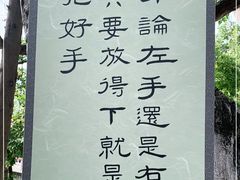 論左手還是右
只要放得下就是
把好手